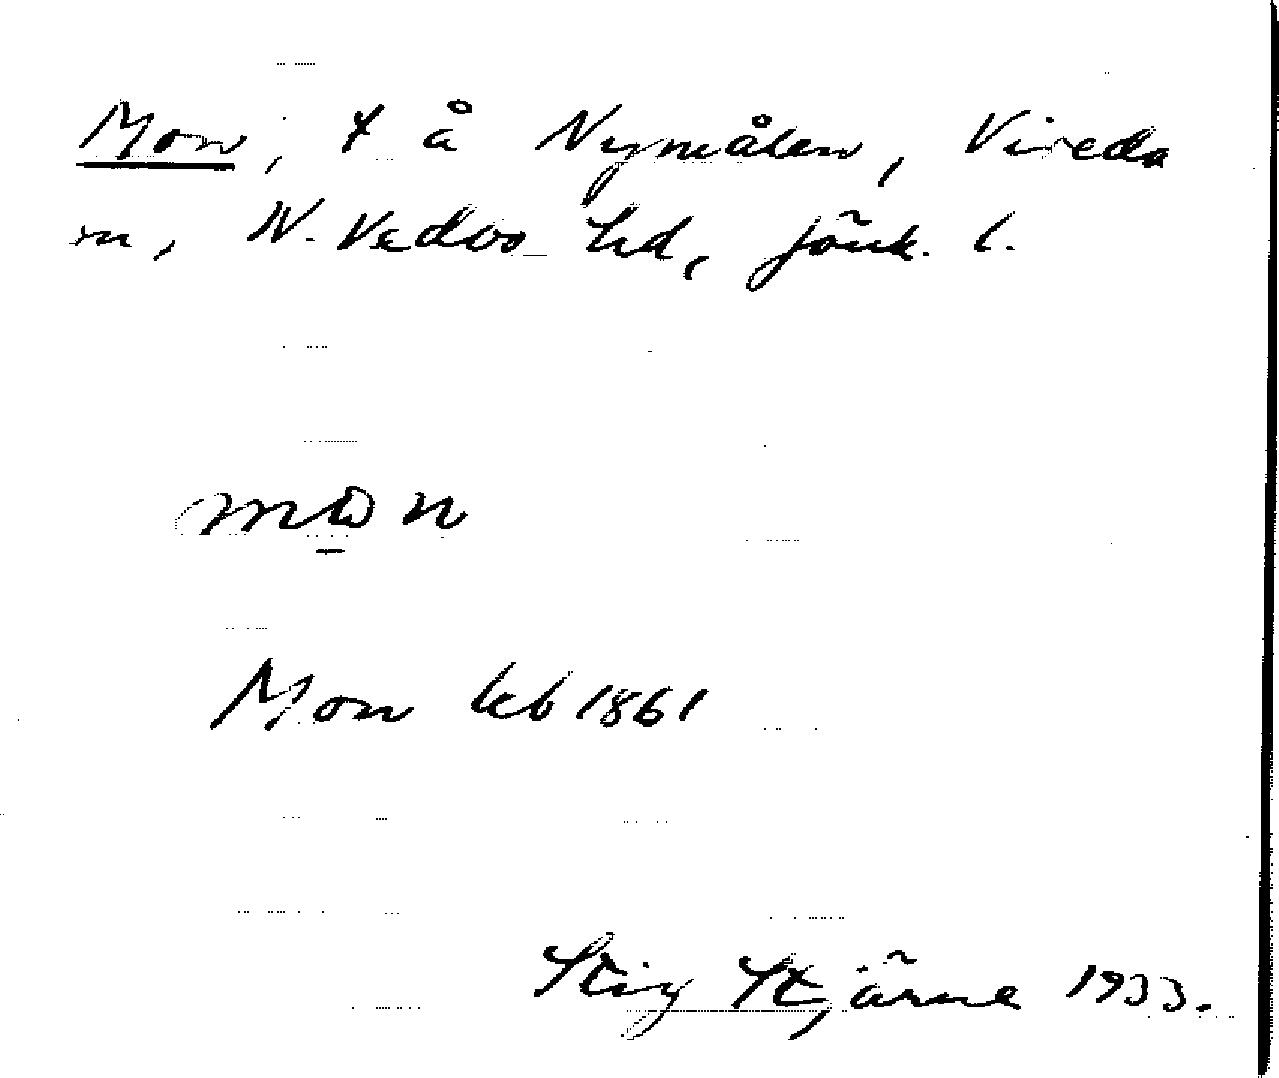 Mon, t å Nymålen, Vireda
sn, N. Vedbo hd, Jönk. l.
mωn
Mon kb 1861
Stig Stjärne 1933.